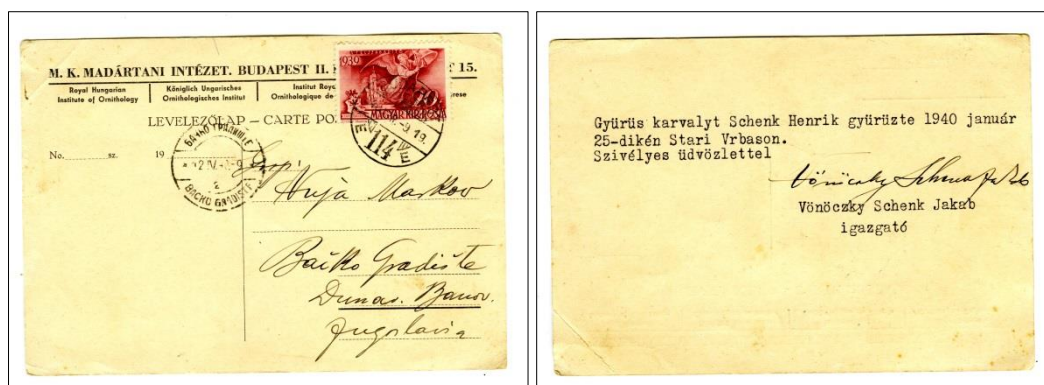 M. K. MADÁRTANI INTÉZET. BUDAPEST II. 15.
Royal Hungarian
Institute of Ornithology
Königlich Ungarisches
Ornithologisches Institut
Institut Roy
Ornithologique de
LEVELEZŐLAP – CARTE PO
No. sz. 19
1939
MAGYAR KIR. POSTA
114
BAČKO GRADIŠTE
Vuja Markov
Bačko Gradište
Dunav. Banov.
Jugoslavia
Gyürüs karvalyt Schenk Henrik gyürüzte 1940 január
25-dikén Stari Vrbason.
Szivélyes üdvözlettel
Vönöczky Schenk Jakab
Vönöczky Schenk Jakab
igazgató